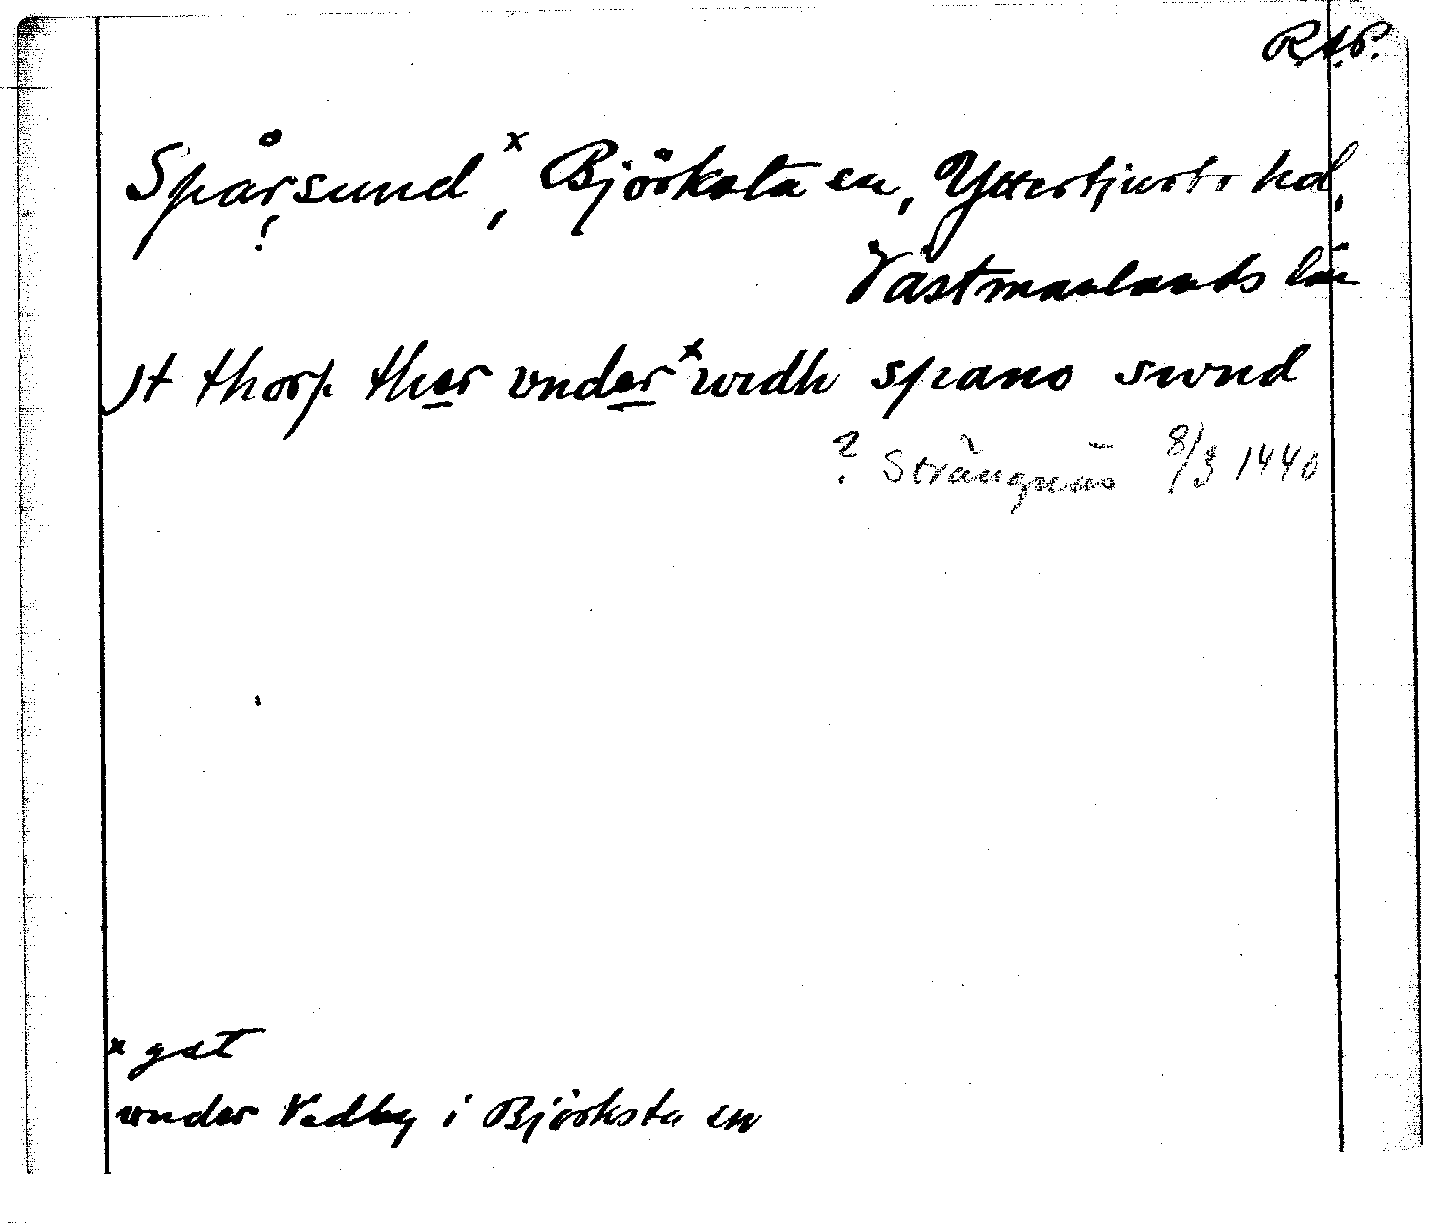 R.A.P.
Spårsund,ˣ Björksta sn, Yttertjurbo hd,
!
Västmanlands län
jt thorp ther vnderˣ widh spans swnd
? Strängnäs 8/3 1440
x gdt
under Vedby i Björksta sn